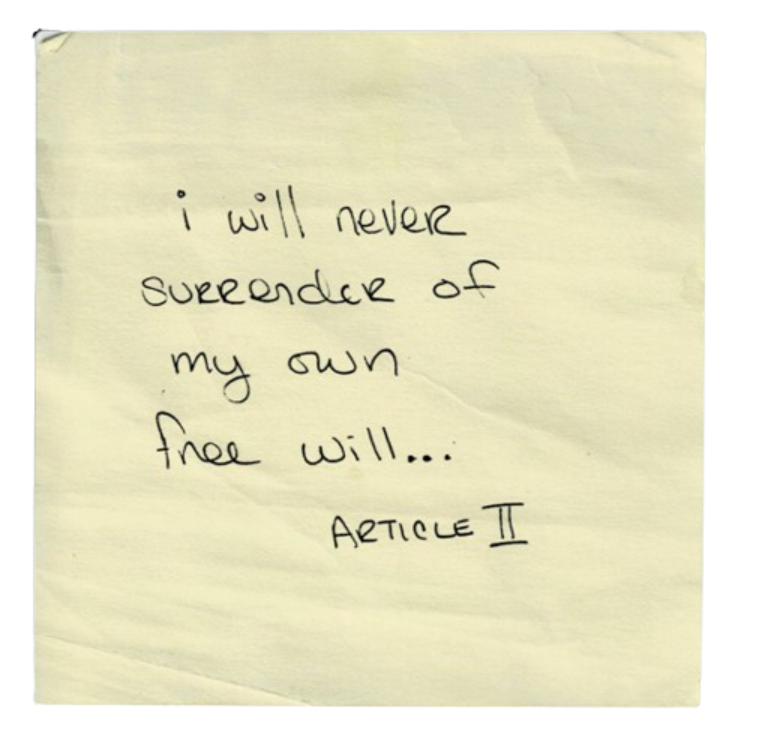 i will never
surrender of
my own
free will...
ARTICLE II